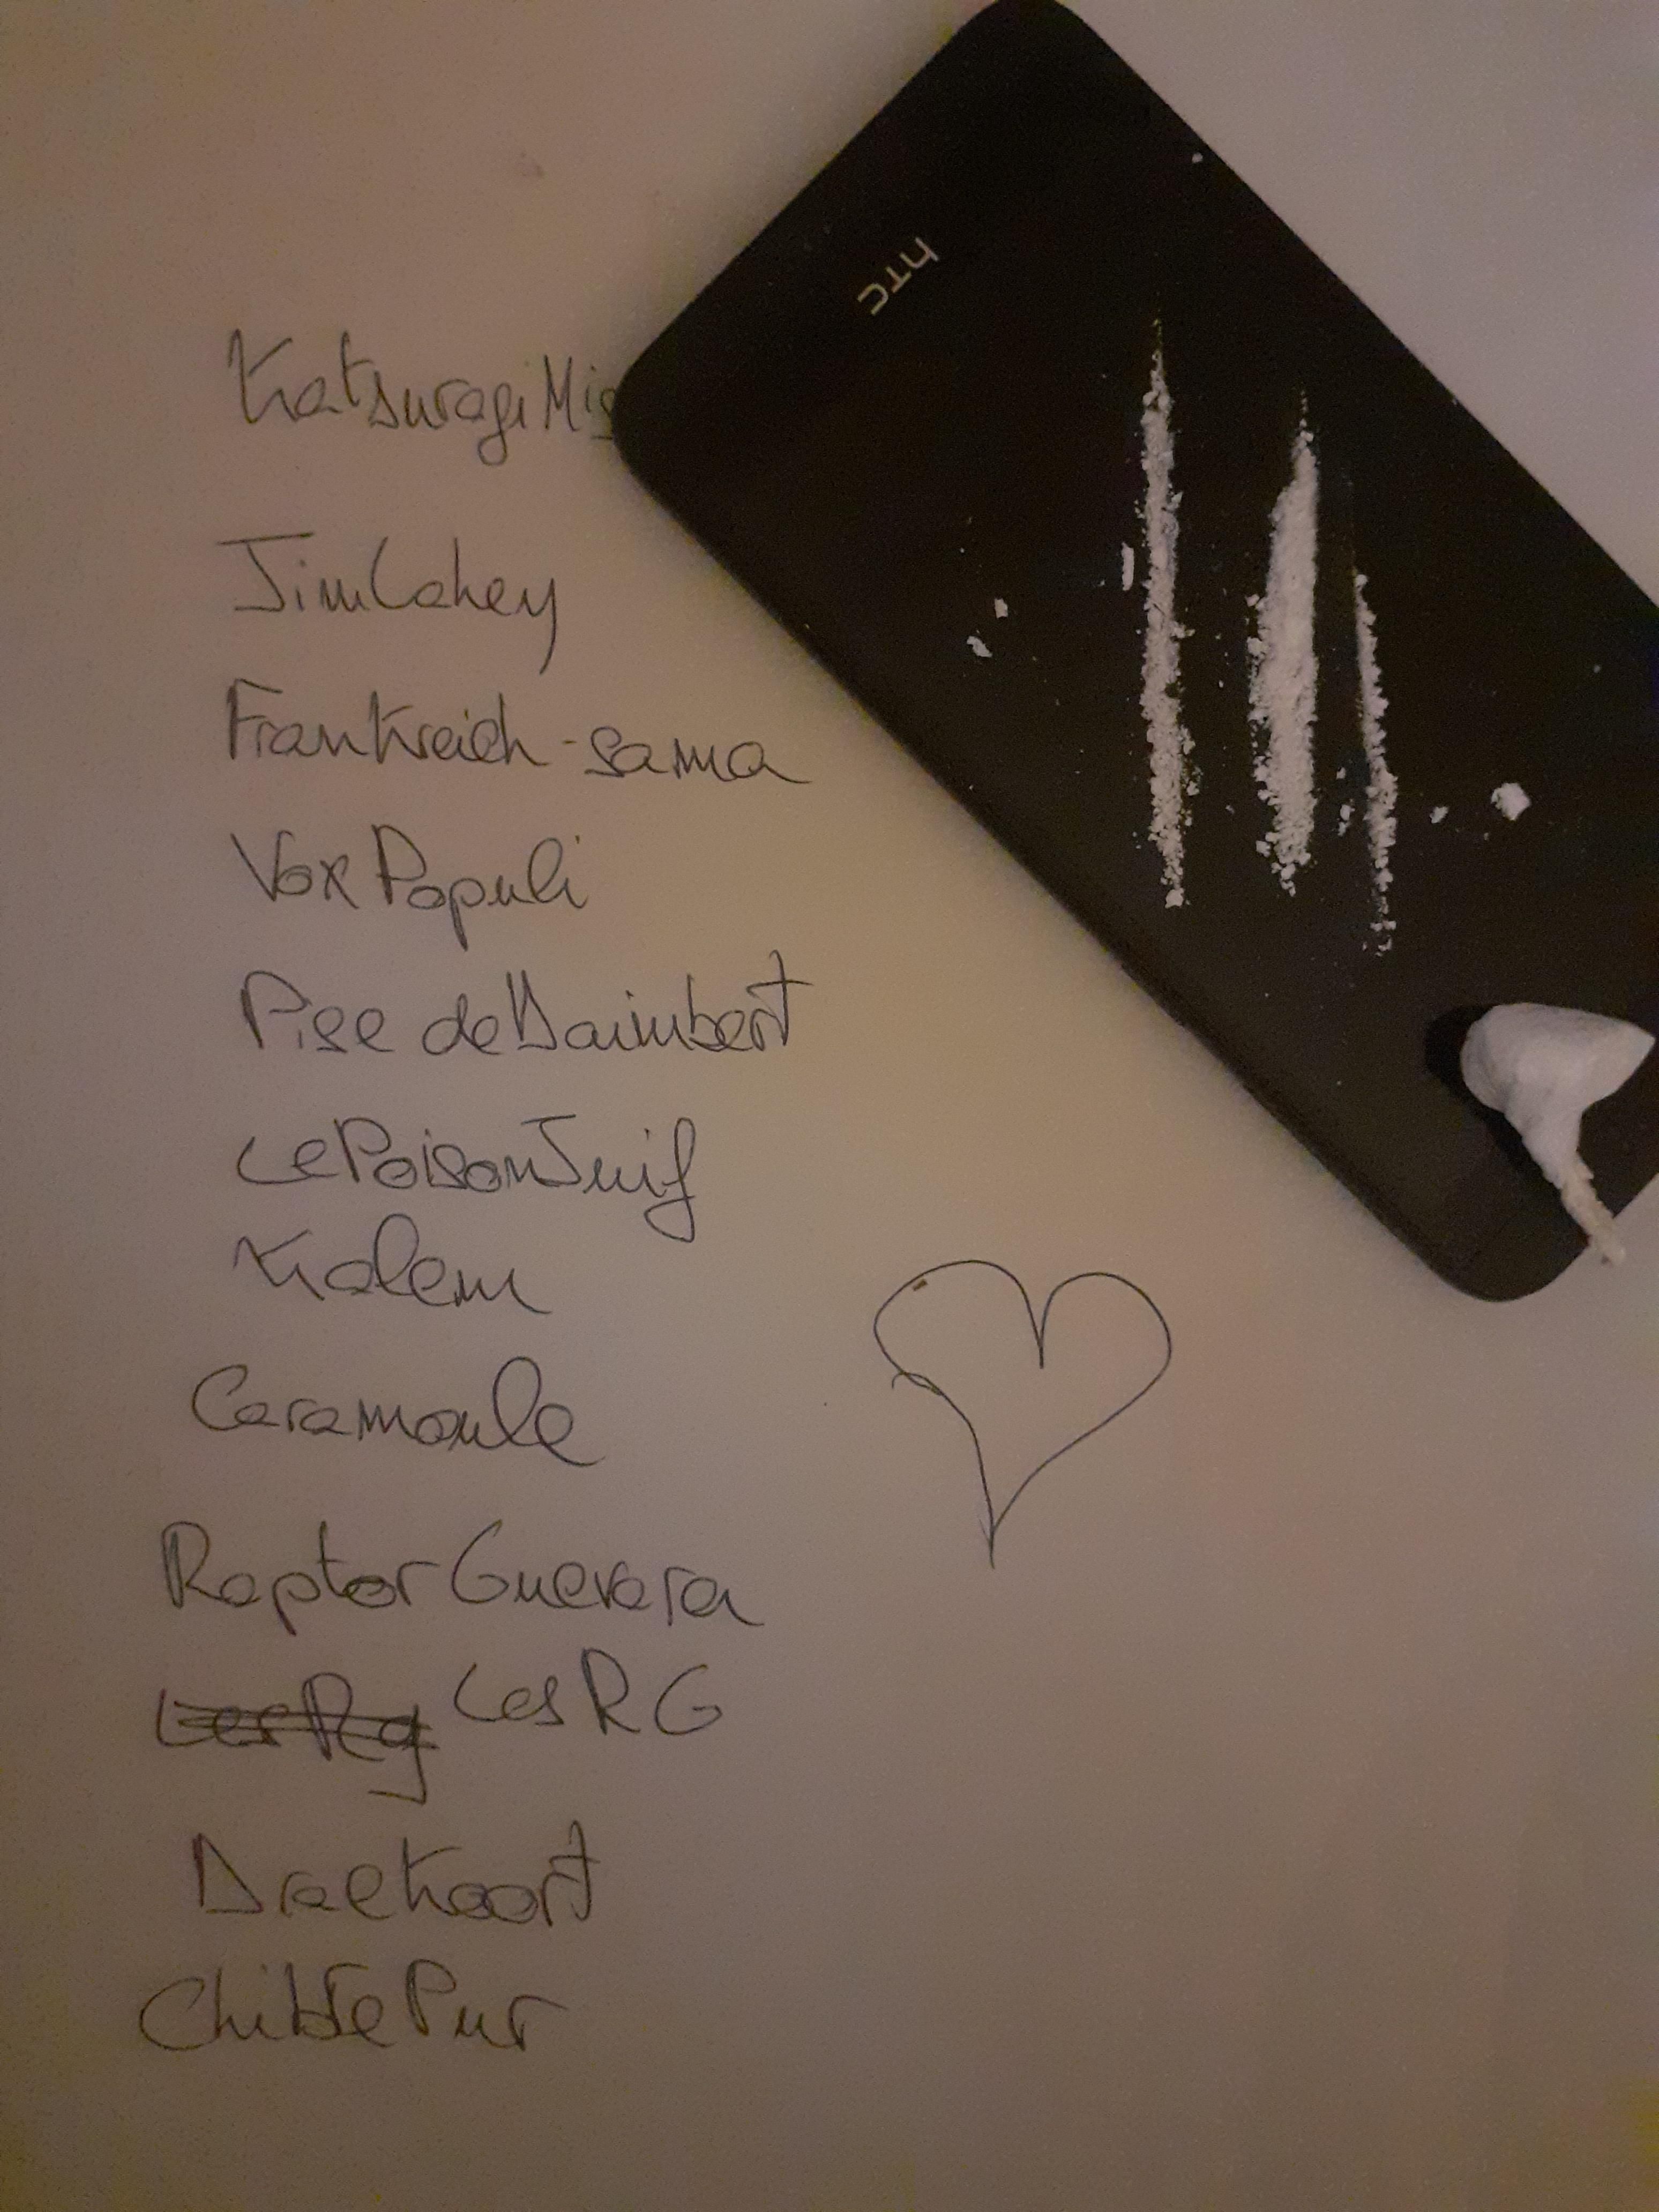 hTC
KatsuragiMis
JimLahey
Frankreich-sama
VoxPopuli
Pise deDaimbert
LePoisonJuif
Kalem
Caramoule
RaptorGuevara
LesRg LesRG
Draekoort
ChibrePur